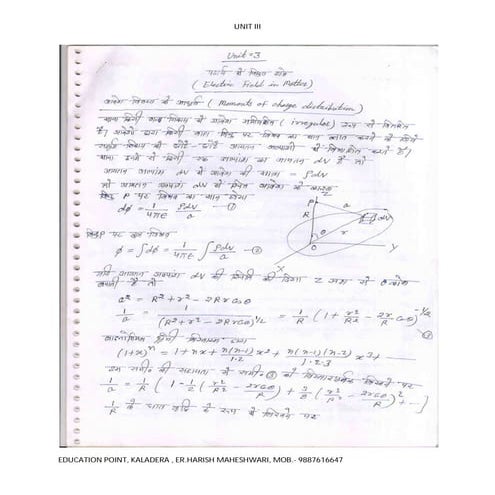 UNIT III
Unit-3
पदार्थ में विद्युत क्षेत्र
( Electric Field in Matter)
आवेश वितरण के आघूर्ण ( Moments of charge distribution)
माना किसी आवेश वितरण में आवेश अनियमित (irregular) रूप से वितरित
है। आवेशों द्वारा किसी बिन्दु पर विभव का मान ज्ञात करने के लिये
छोटे छोटे आयतन अल्पांशों में विभाजित करते हैं।
माना इनमें से किसी एक अल्पांश का आयतन dv है तो
आयतन अल्पांश dv में आवेश की मात्रा = ρdv
तो आयतन अल्पांश dv में स्थित आवेश के कारण
बिन्दु P पर विभव का मान होगा
dφ = 1/4πε ρdv/a —①
Z
P
R
a
dv
θ
r
O
Y
X
बिन्दु P पर कुल विभव
φ = ∫dφ = 1/4πε ∫ ρdv/a —②
यदि आयतन अल्पांश dv की स्थिति की दिशा Z अक्ष से θ कोण
बनाती है तो
a² = R²+r²-2Rrcosθ
1/a = 1/(R²+r²-2Rrcosθ)^1/2 = 1/R (1+ r²/R² - 2r/R cosθ)^-1/2 —③
द्विपद विस्तार द्वारा
(1+x)ⁿ = 1+nx+ n(n-1)/1·2 x² + n(n-1)(n-2)/1·2·3 x³+ ----
इस समी० की सहायता से समी० ③ को विस्तारपूर्वक लिखने पर
1/a = 1/R [ 1 - 1/2 ( r²/R² - 2rcosθ/R ) + 3/8 ( r²/R² - 2rcosθ/R )² + --- ]
1/R के घात वृद्धि के रूप में लिखने पर
EDUCATION POINT, KALADERA , ER.HARISH MAHESHWARI, MOB.- 9887616647